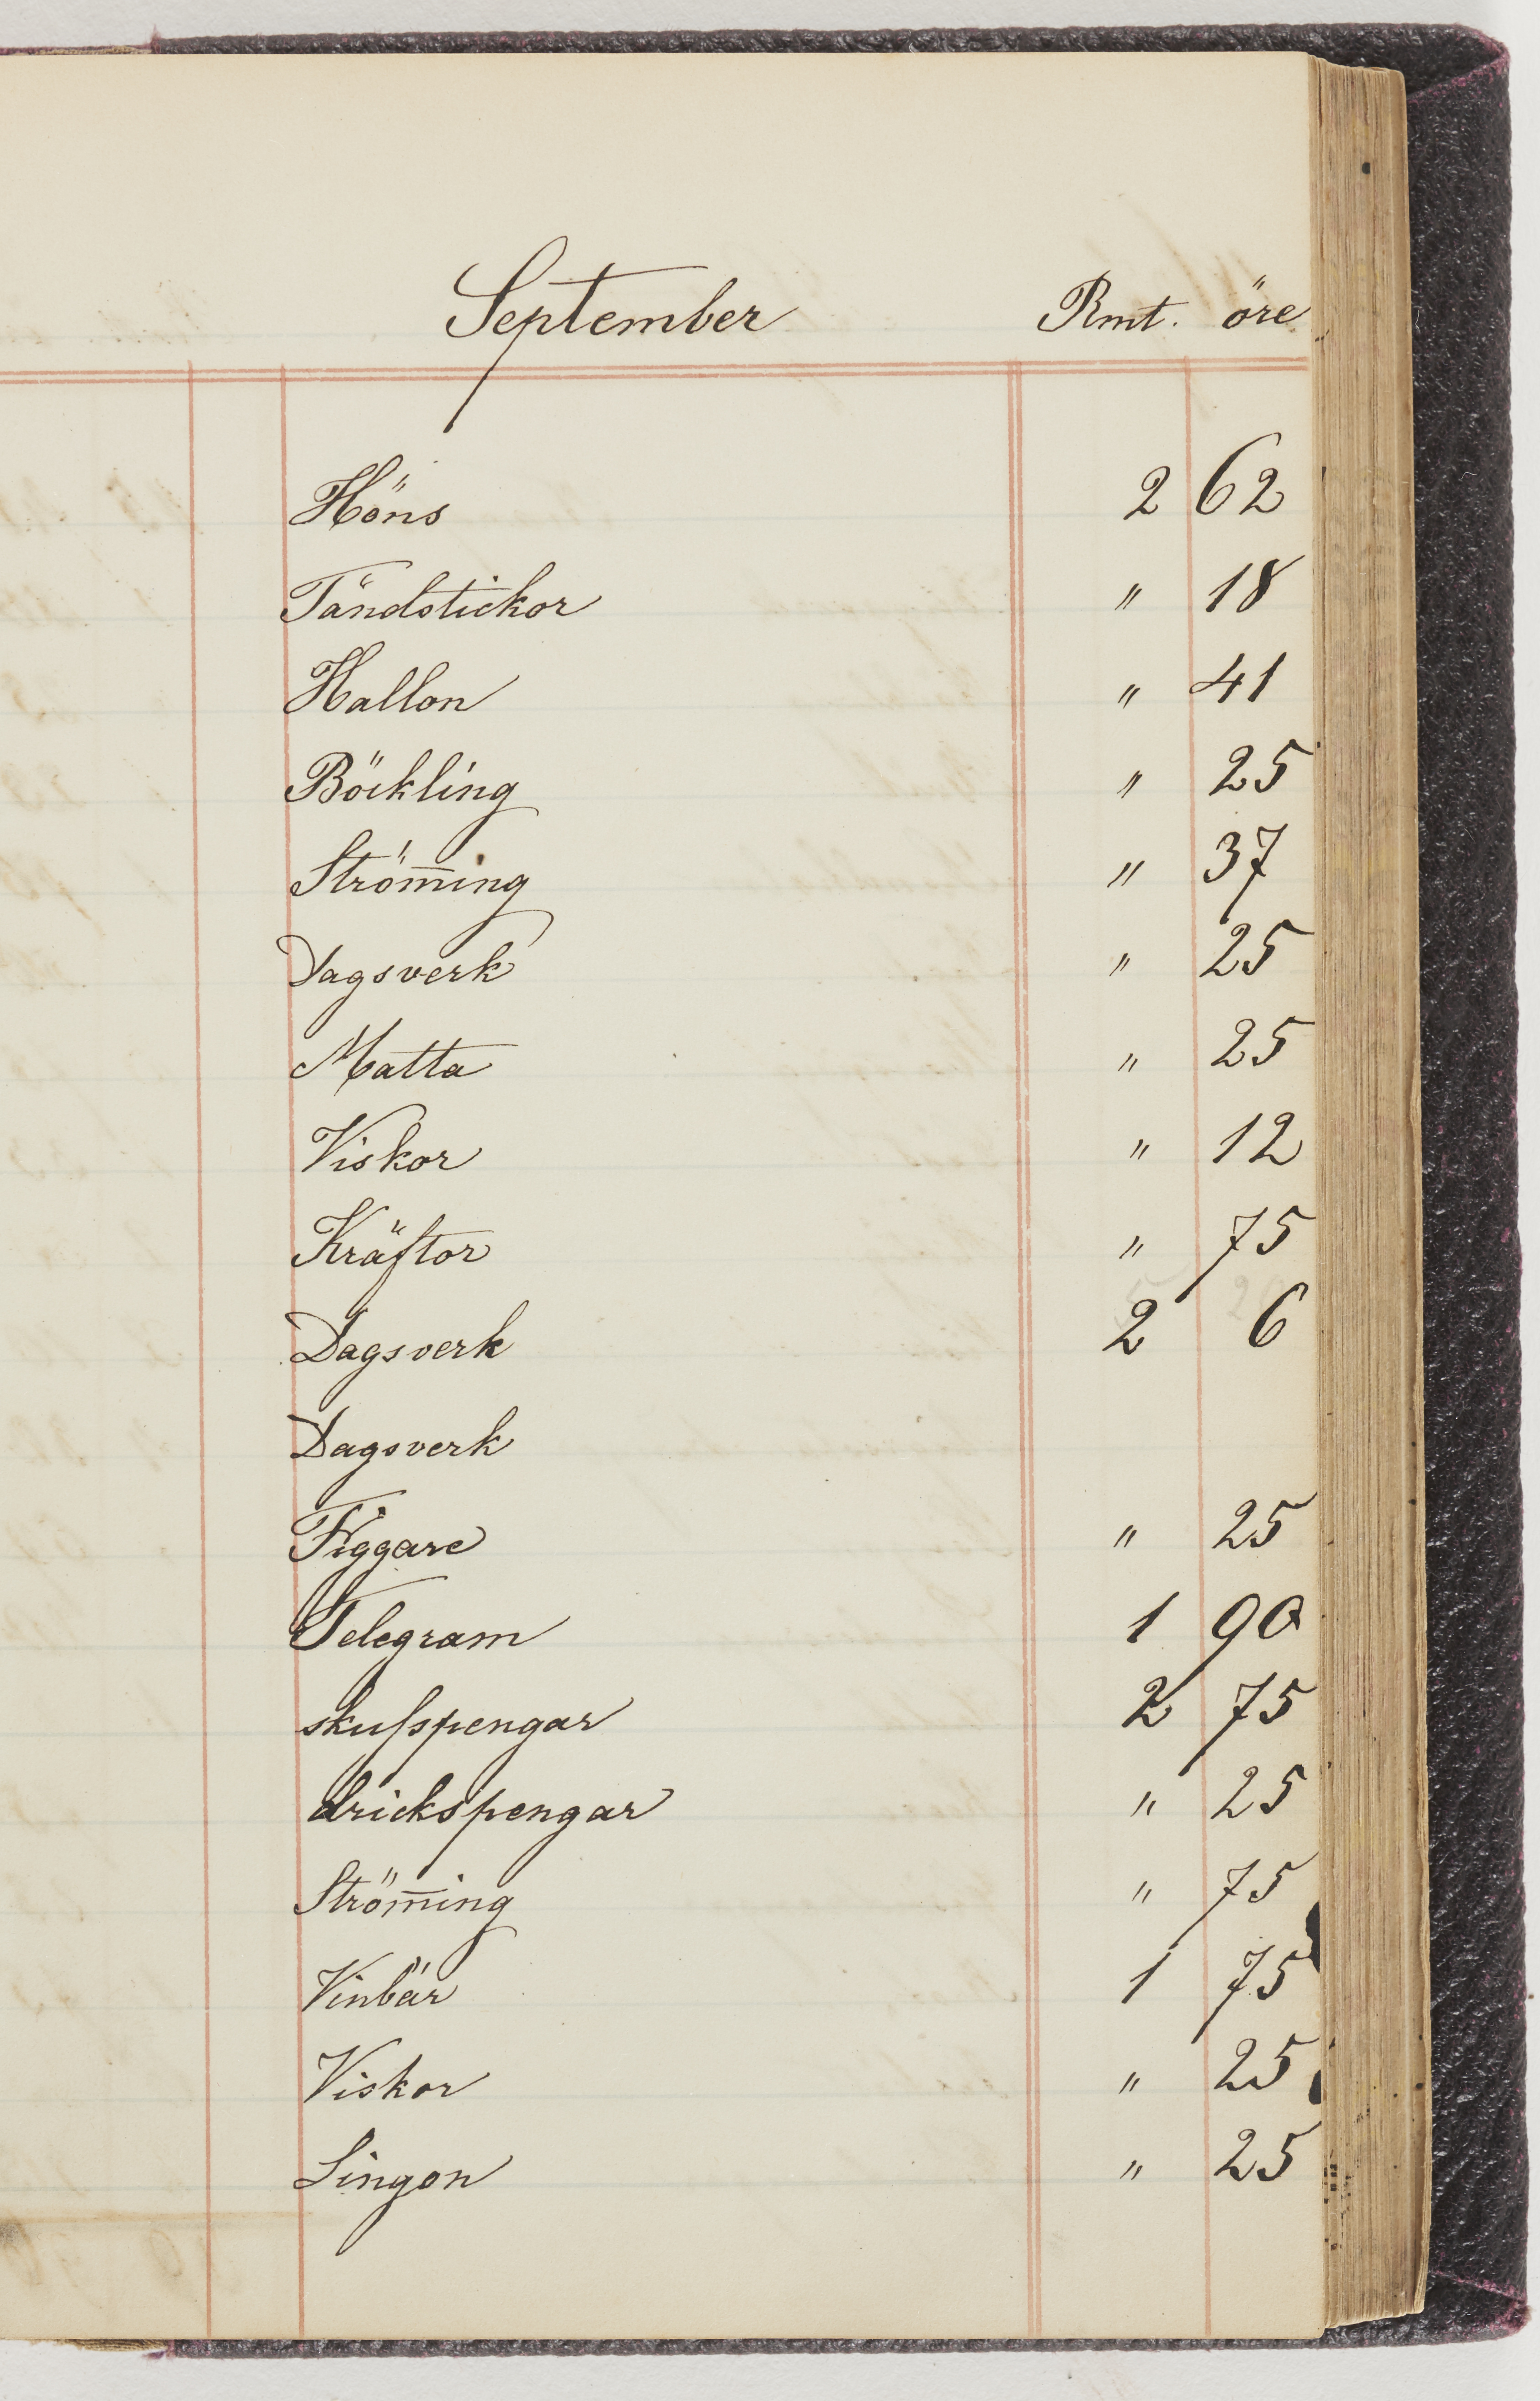 September Rmt. öre
Höns 2 62
Tändstickor " 18
Hallon " 41
Böckling " 25
Ström̅ing " 37
Dagsverk " 25
Matta " 25
Viskor " 12
Kräftor " 75
Dagsverk 2 6
Dagsverk
Tiggare " 25
Telegram 1 90
skufspengar 2 75
drickspengar " 25
Ström̅ing " 75
Vinbär 1 75
Viskor " 25
Lingon " 25